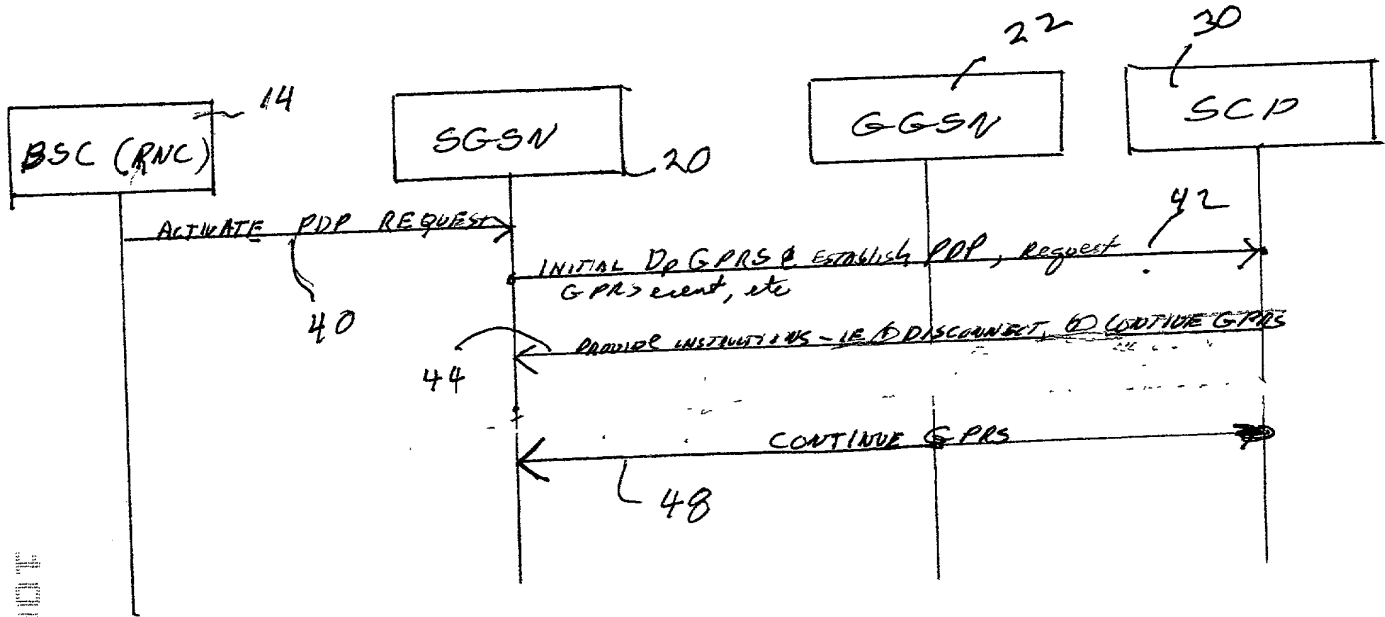 22
30
14
BSC (RNC)
SGSN
20
GGSN
SCP
ACTIVATE PDP REQUEST
40
42
INITIAL Dp GPRS & ESTABLISH PDP, Request
GPRS event, etc
PROVIDE INSTRUCTIONS - IE DISCONNECT, CONTINUE GPRS
44
CONTINUE GPRS
48